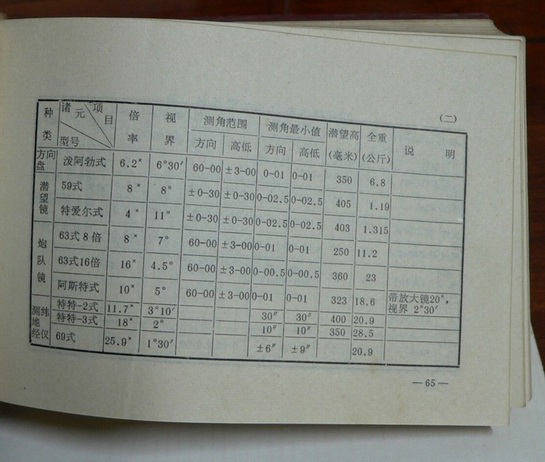 (二)
种类 诸元 项目 型号 倍率 视界 测角范围 测角最小值 潜望高(毫米) 全重(公斤) 说明
方向 高低 方向 高低
方向盘 泼阿勃式 6.2ˣ 6°30′ 60-00 ±3-00 0-01 0-01 350 6.8
潜望镜 59式 8ˣ 8° ±0-30 ±0-30 0-02.5 0-02.5 405 1.19
特爱尔式 4ˣ 11° ±0-30 ±0-30 0-02.5 0-02.5 403 1.315
炮队镜 63式8倍 8ˣ 7° 60-00 ±3-00 0-01 0-01 250 11.2
63式16倍 16ˣ 4.5° 60-00 ±3-00 0-00.5 0-00.5 360 23
阿斯特式 10ˣ 5° 60-00 ±3-00 0-01 0-01 323 18.6 带放大镜20ˣ,视界 2°30′
测地经纬仪 特特-2式 11.7ˣ 3°10′ 30″ 30″ 400 20.9
特特-3式 18ˣ 2° 10″ 10″ 350 28.5
69式 25.9ˣ 1°30′ ±6″ ±9″ 20.9
—65—